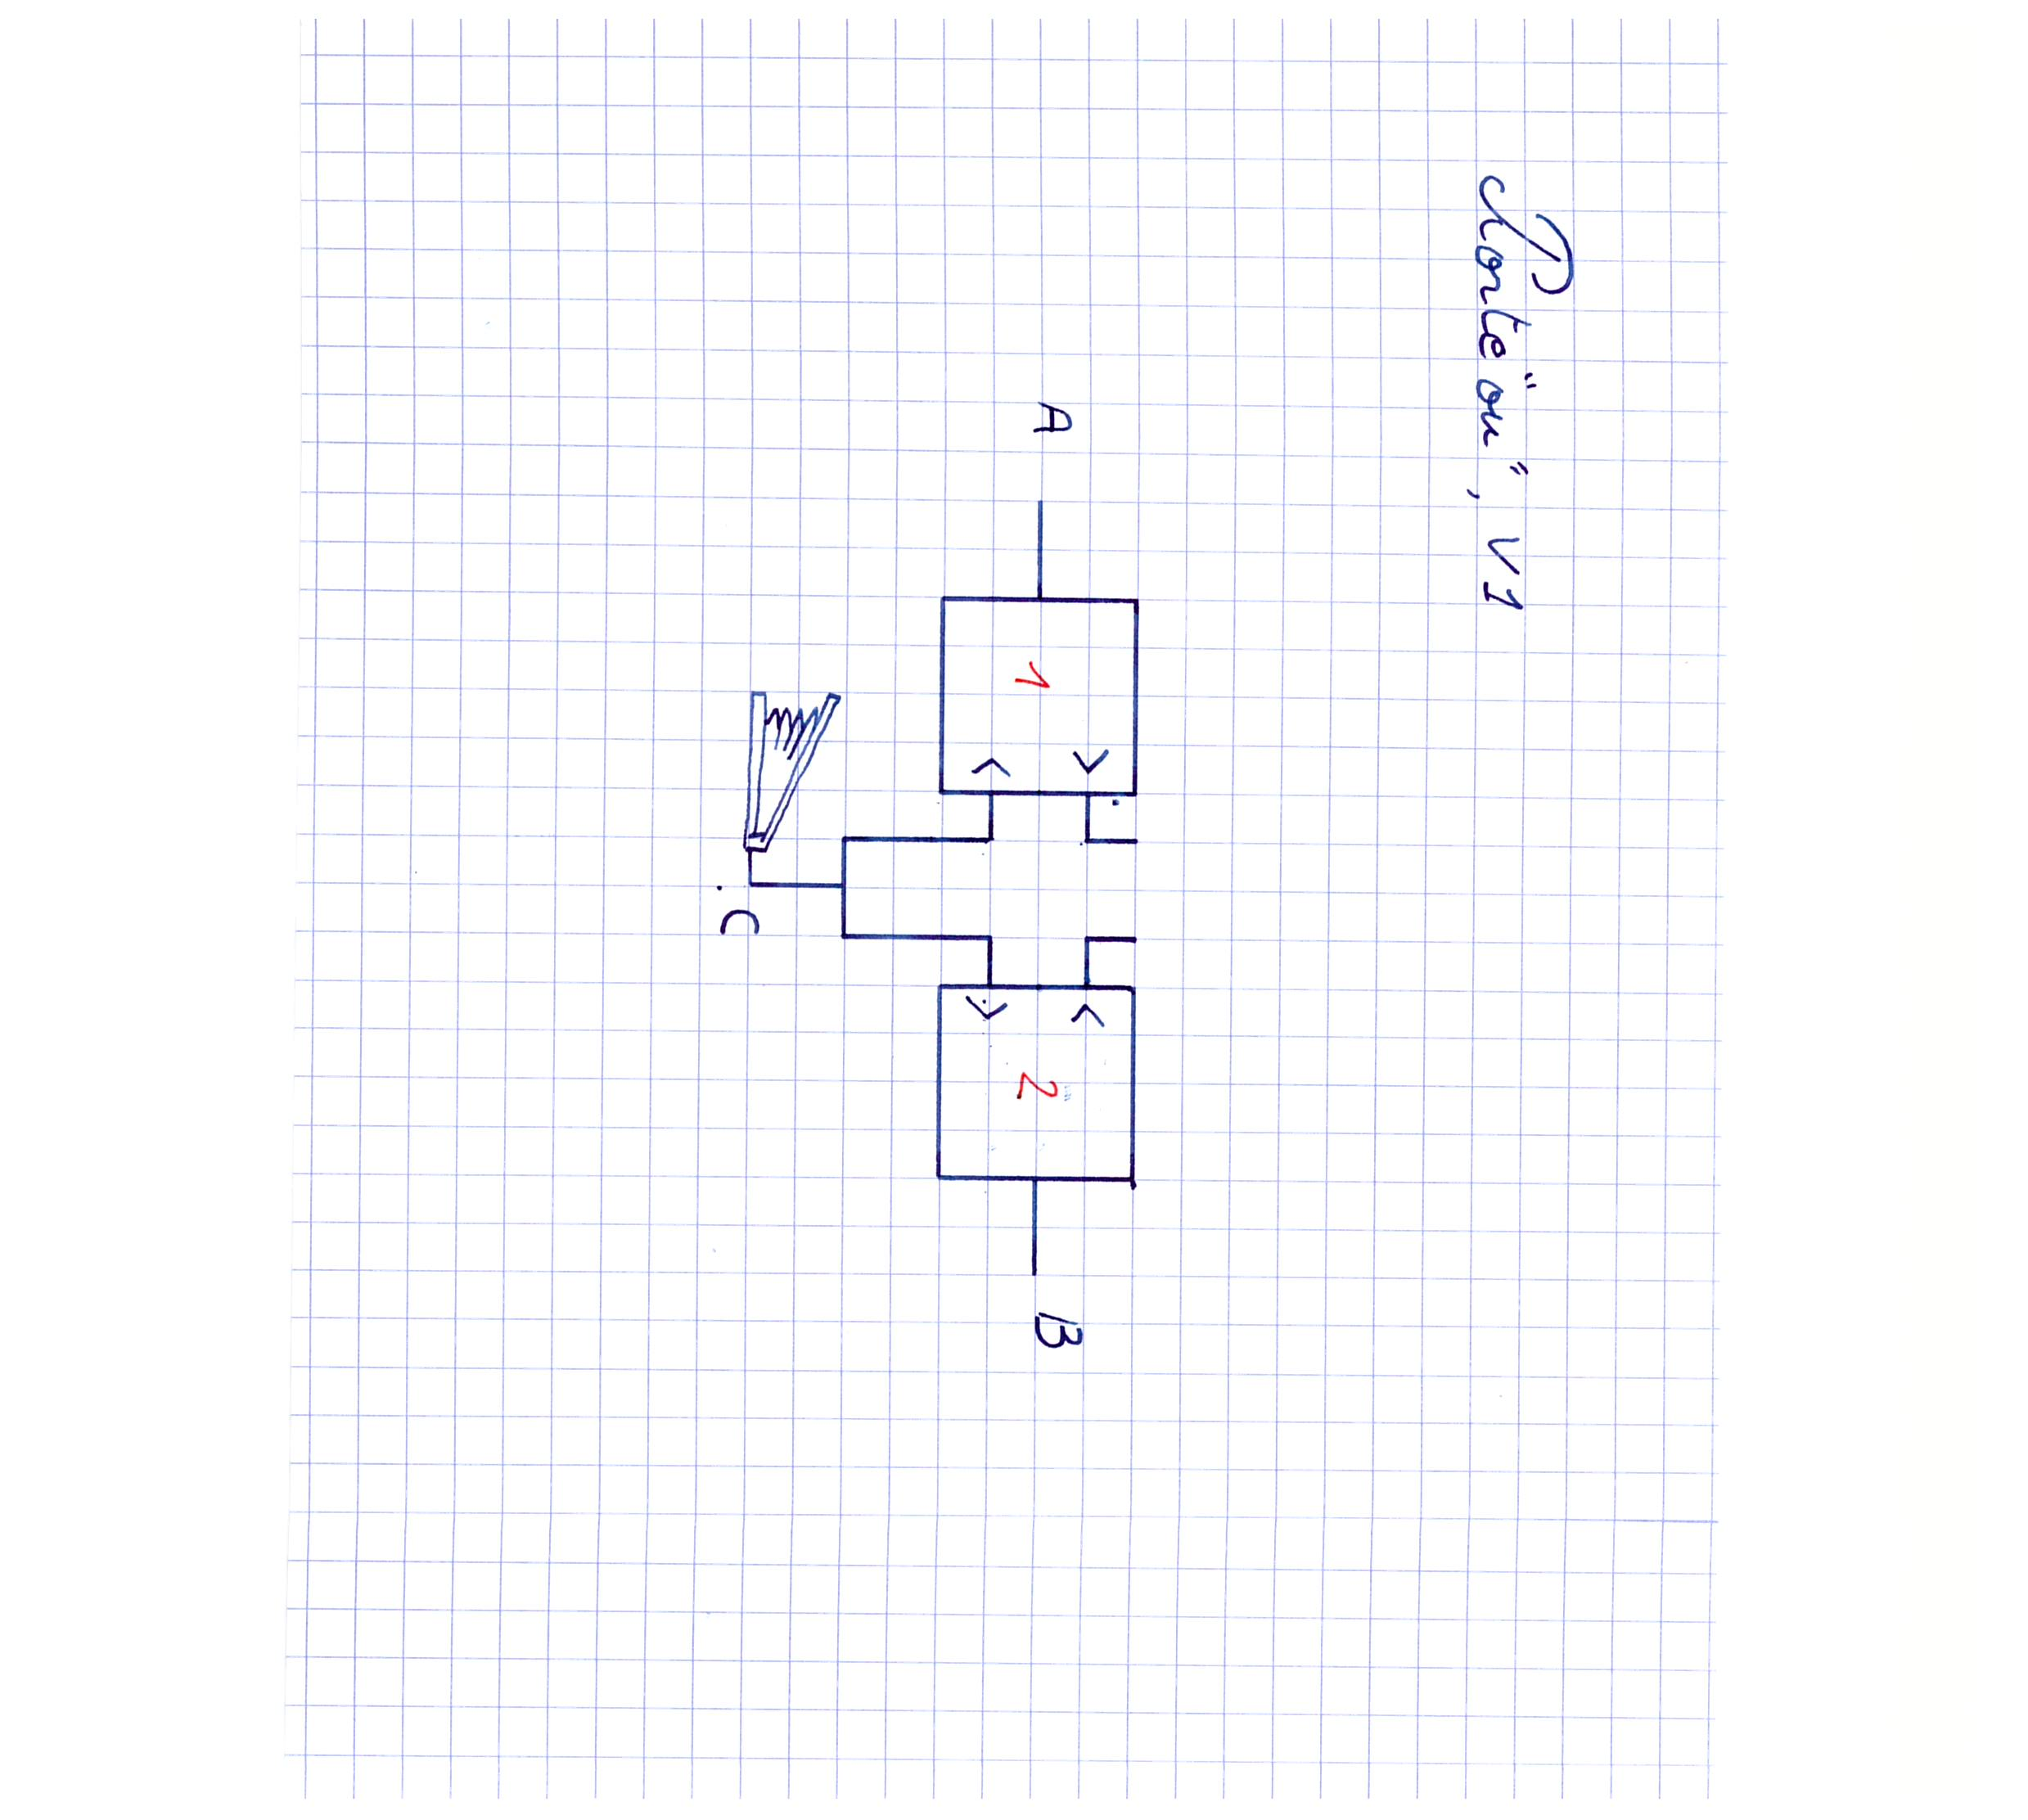 Porte "ou", V1
A
1
2
B
C